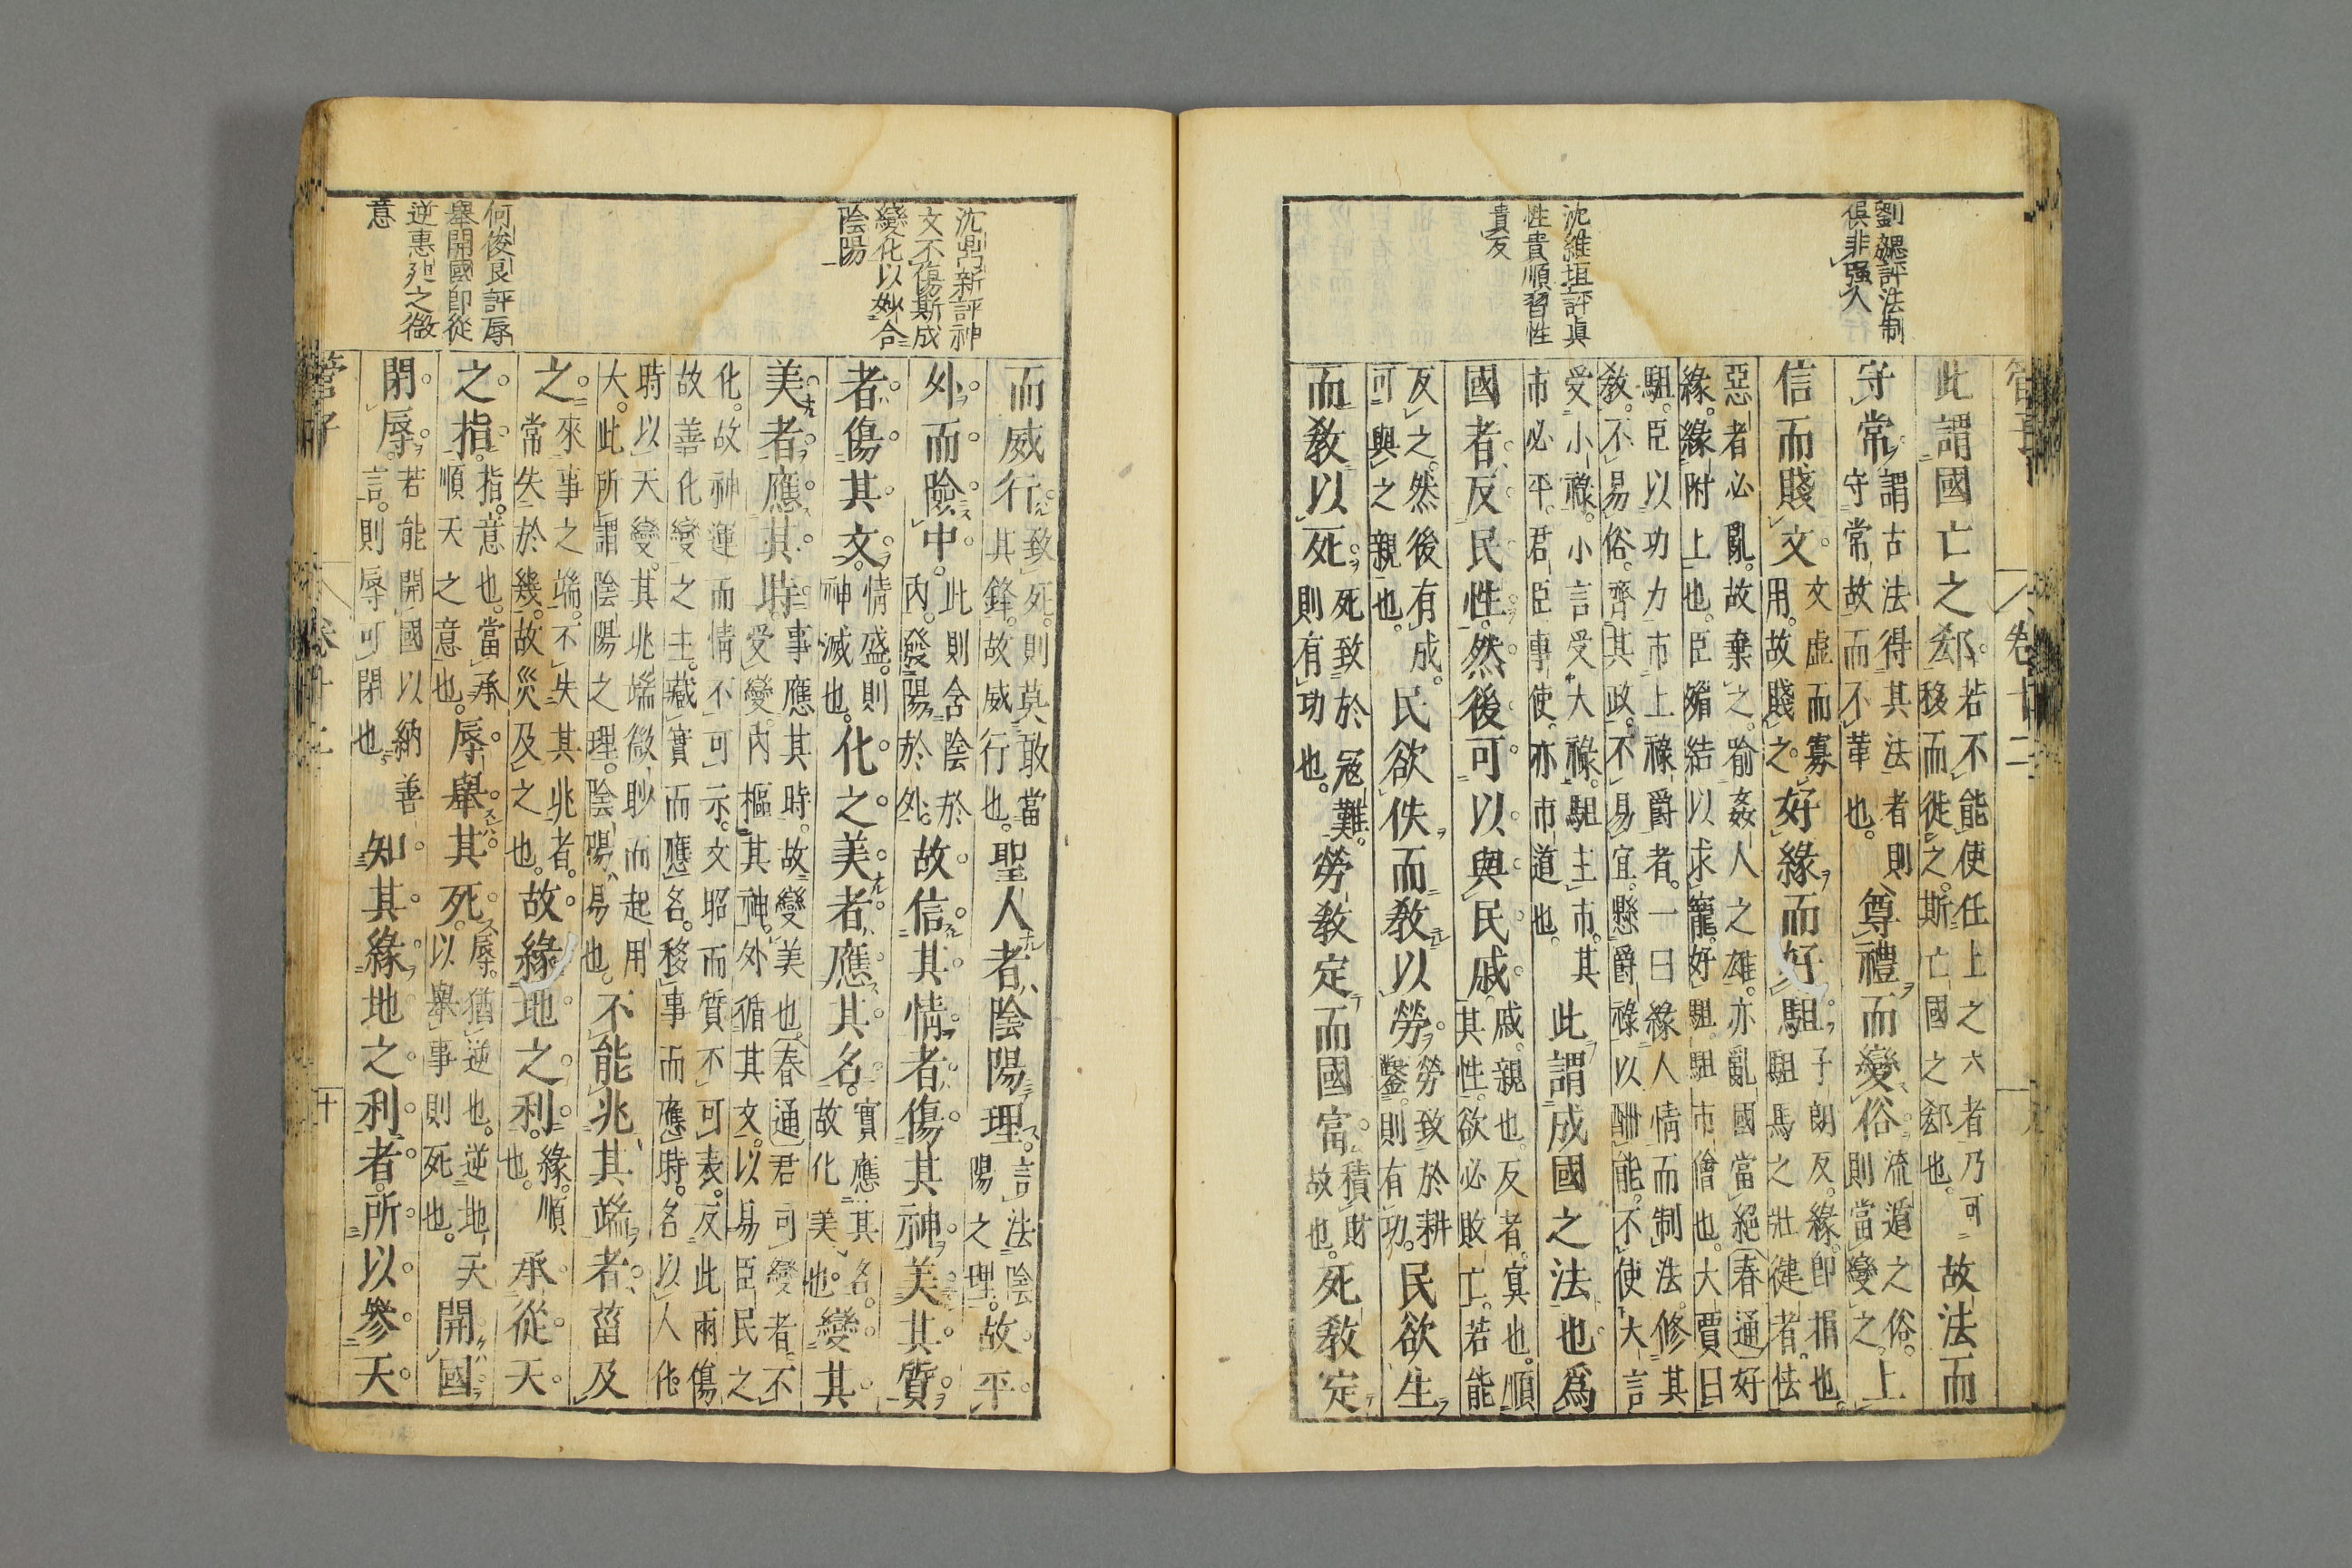 劉勰評法制
俱非强人
沈維垣評眞
性貴順習性
貴反
管子
卷十二
此謂國亡之郄
若不能使任上之六者乃可
移而徙之斯亡國之郄也
故法而
守常
謂古法得其法者則
守常故而不革也
尊禮而變俗
流遁之俗
則當變之
上
信而賤文
文虛而寡
用故賤之
好緣而好駔
子朗反緣即捐也
駔馬之壯健者怯
惡者必亂故棄之喻姦人之雄亦亂國當絕春通好
緣緣附上也臣媚結以求寵好駔駔市儈也大賈曰
駔臣以功力市上祿爵者一曰緣人情而制法修其
教不易俗齊其政不易宜懸爵祿以酬能不使大言
受小祿小言受大祿駔主市其
市必平君臣事使亦市道也
此謂成國之法也爲
國者反民性然後可以與民戚
戚親也反者寘也順
其性欲必敗亡若能
反之然後有成
可與之親也
民欲佚而教以勞
勞致於耕
鑿則有功
民欲生
而教以死
死致於冦難
則有功也
勞教定而國富
積財
故也
死教定
沈鼎新評神
文不傷斯成
變化以妙合
陰陽
何俊良評辱
舉開國即從
逆惠㐫之徵
意
而威行
致死則莫敢當
其鋒故威行也
聖人者陰陽理
言法陰
陽之理
故平
外而險中
此則舍陰於
內發陽於外
故信其情者傷其神美其質
者傷其文
情盛則
神滅也
化之美者應其名
實應其名
故化美也
變其
美者應其時
事應其時故變美也春通君可變者不
受變內樞其神外循其文以易臣民之
化故神運而情不可示文昭而質不可表反此兩傷
故善化變之主藏實而應名移事而應時名以人化
時以天變其兆端微眇而起用
大此所謂陰陽之理陰陽易也
不能兆其端者菑及
之
來事之端不失其兆者
常失於幾故災及之也
故緣地之利
緣順
也
承從天
之指
指意也當承
順天之意也
辱舉其死
辱猶逆也逆地天
以舉事則死也
開國
閉辱
若能開國以納善
言則辱可閉也
知其緣地之利者所以參天
管子
卷十二
十